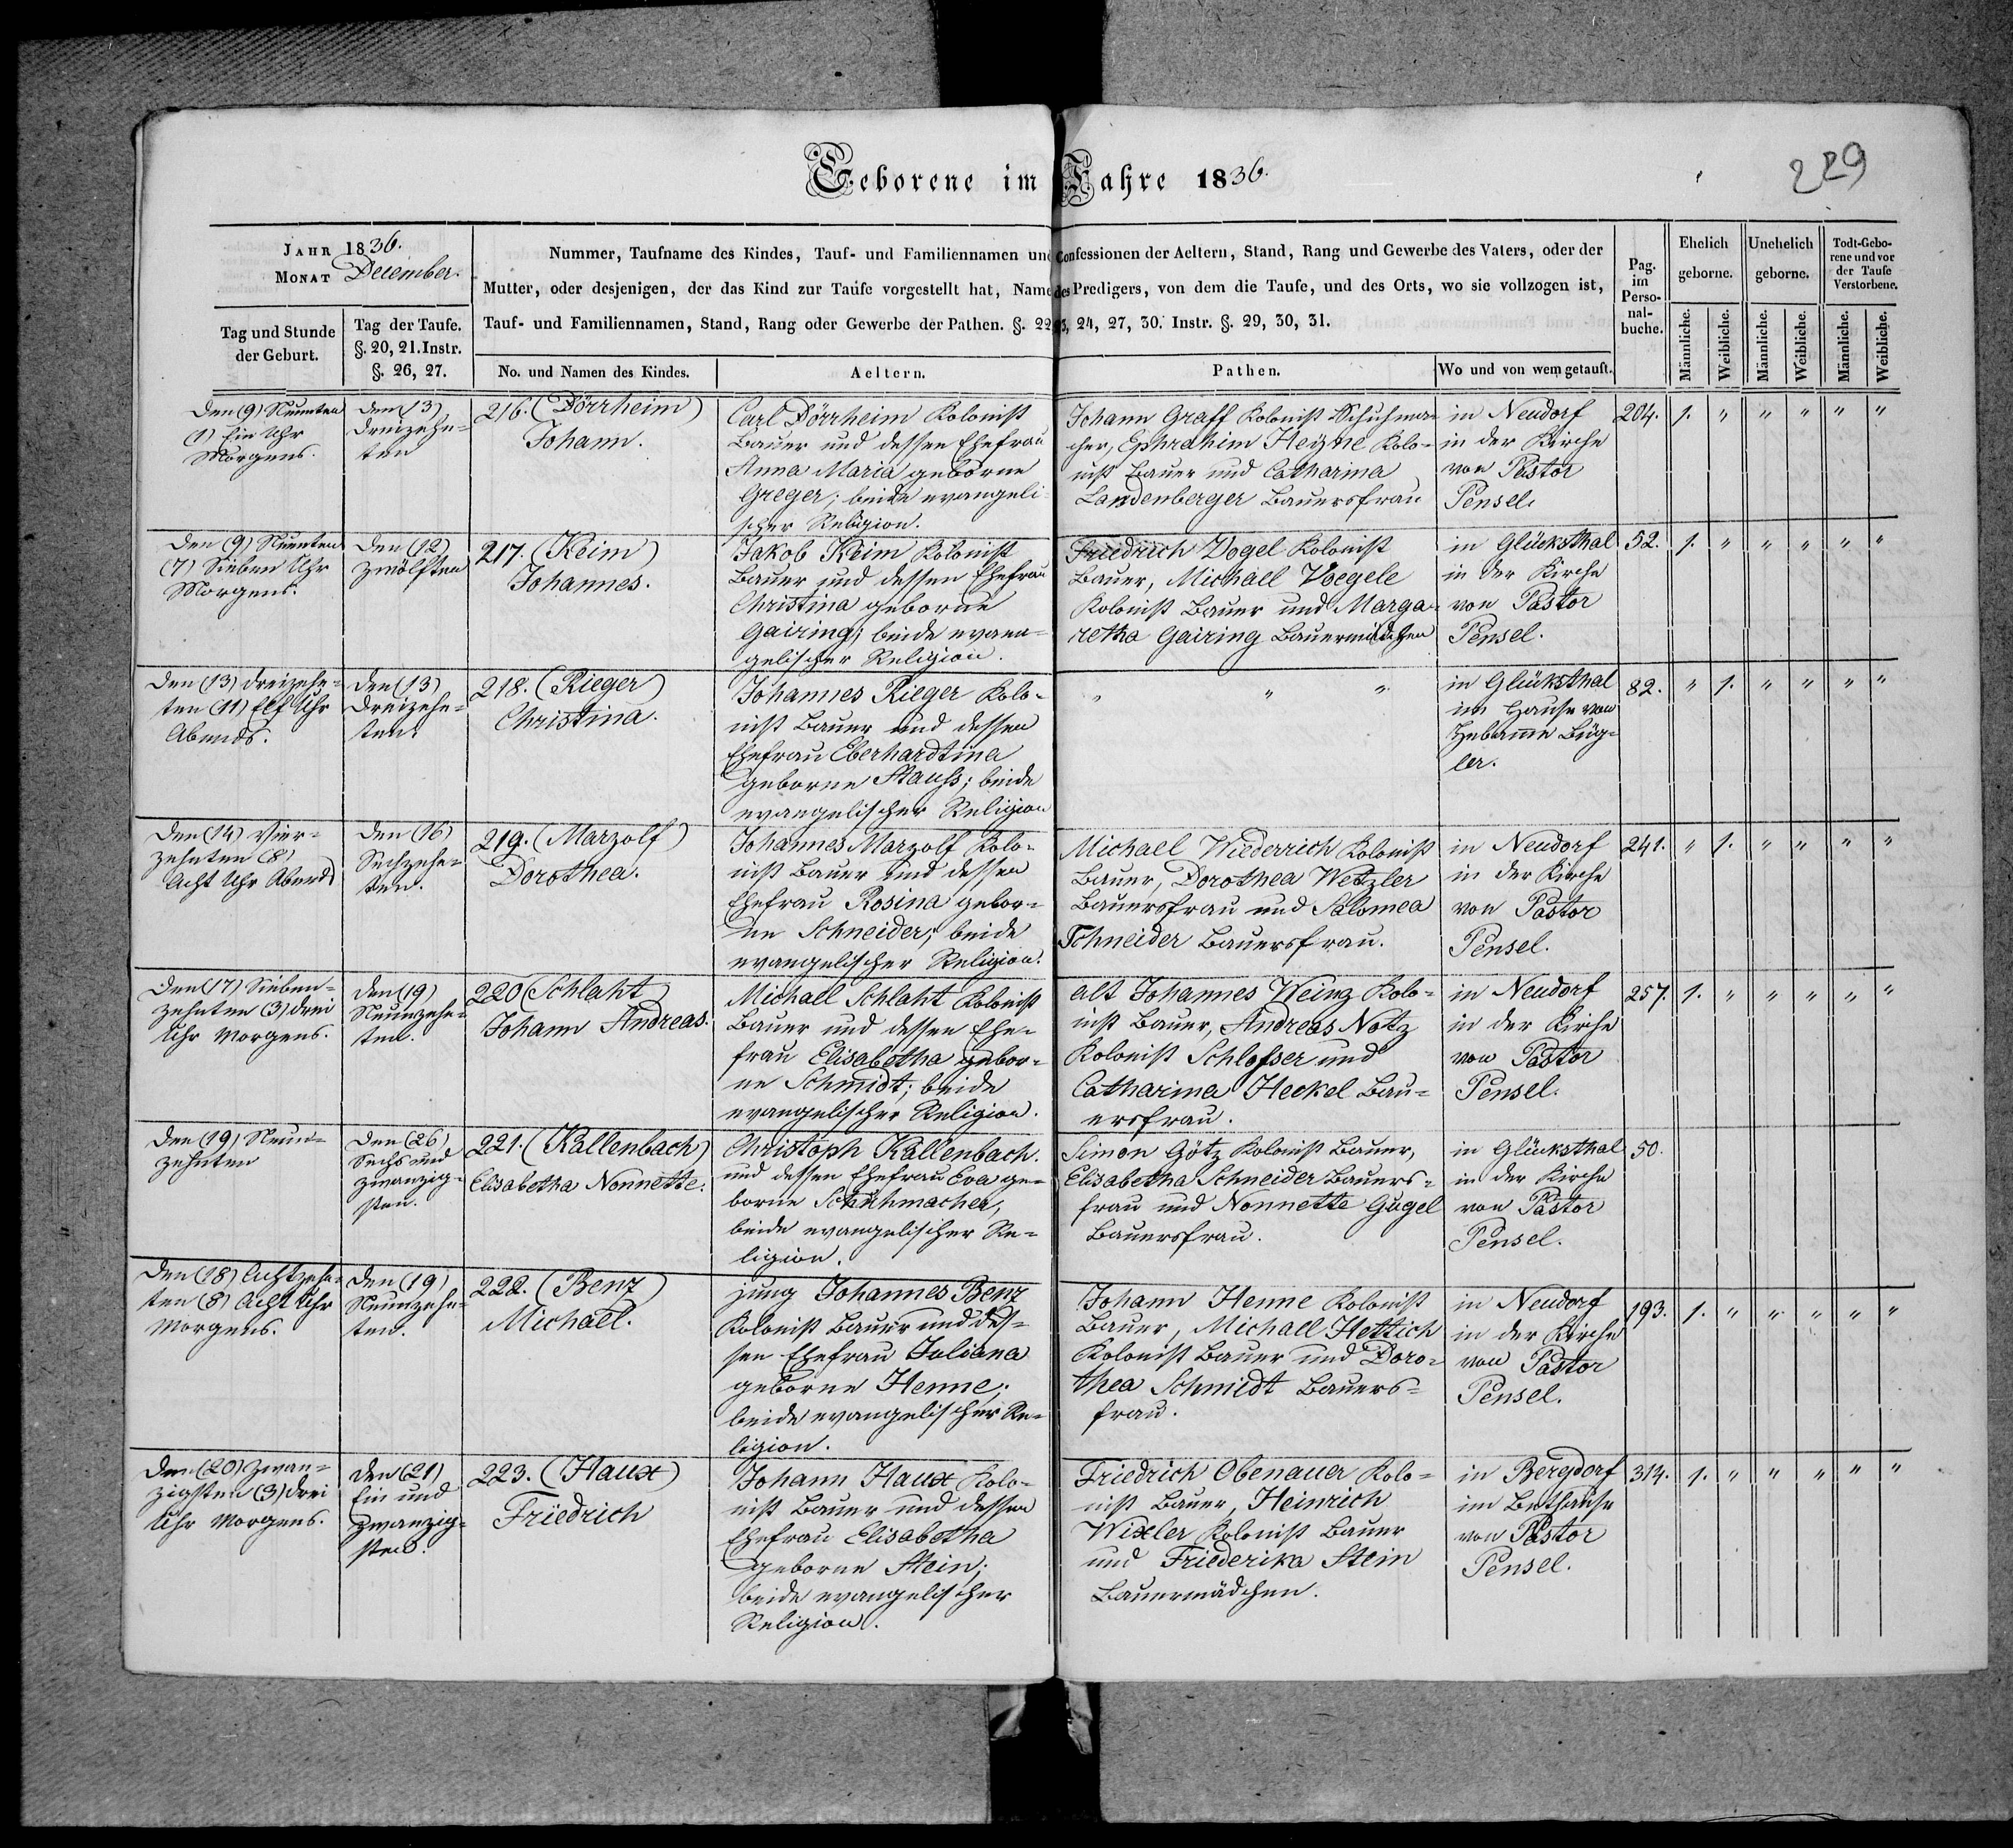 Geborene im Jahre 1836.
229
JAHR 1836.
MONAT December.
Nummer, Taufname des Kindes, Tauf- und Familiennamen und Confessionen der Aeltern, Stand, Rang und Gewerbe des Vaters, oder der
Mutter, oder desjenigen, der das Kind zur Taufe vorgestellt hat, Name des Predigers, von dem die Taufe, und des Orts, wo sie vollzogen ist,
Tauf- und Familiennamen, Stand, Rang oder Gewerbe der Pathen. §. 22, 23, 24, 27, 30. Instr. §. 29, 30, 31.
Tag und Stunde
der Geburt.
Tag der Taufe.
§. 20, 21. Instr.
§. 26, 27.
No. und Namen des Kindes.
Aeltern.
Pathen.
Wo und von wem getauft.
Pag.
im
Perso-
nal-
buche.
Ehelich
geborne.
Unehelich
geborne.
Todt-Gebo-
rene und vor
der Taufe
Verstorbene.
Männliche.
Weibliche.
Männliche.
Weibliche.
Männliche.
Weibliche.
Den (9) Neunten
(1) Ein Uhr
Morgens.
Den (13)
Dreizehn-
ten
216. (Dörrheim)
Johann.
Carl Dörrheim Kolonist
Bauer und dessen Ehefrau
Anna Maria geborne
Greger; beide evangeli-
scher Religion.
Johann Graff Kolonist Schuhma-
cher, Ephrahim Heyne Kolo-
nist Bauer und Catharina
Landenberger Bauersfrau
in Neudorf
in der Kirche
von Pastor
Pensel.
204. 1. " " " " "
Den (9) Neunten
(7) Sieben Uhr
Morgens.
Den (12)
Zwölften
217. (Keim)
Johannes.
Jakob Keim Kolonist
Bauer und dessen Ehefrau
Christina geborne
Gairing; beide evan-
gelischer Religion.
Friedrich Vogel Kolonist
Bauer, Michael Voegele
Kolonist Bauer und Marga-
retha Gairing Bauermädchen
in Glücksthal
in der Kirche
von Pastor
Pensel.
52. 1. " " " " "
Den (13) Dreizehn-
ten (11) Elf Uhr
Abends.
Den (13)
Dreizehn-
ten.
218. (Rieger)
Christina.
Johannes Rieger Kolo-
nist Bauer und dessen
Ehefrau Eberhardtina
geborne Stauss; beide
evangelischer Religion
" " "
in Glücksthal
im Hause von
Hebamme Büg-
ler.
82. " 1. " " " "
Den (14) Vier-
zehnten (8)
Acht Uhr Abends
Den (16)
Sechzehn-
ten.
219. (Marzolf)
Dorothea.
Johannes Marzolf Kolo-
nist Bauer und dessen
Ehefrau Rosina gebor-
ne Schneider; beide
evangelischer Religion.
Michael Wiederrich Kolonist
Bauer, Dorothea Wetzler
Bauersfrau und Salomea
Schneider Bauersfrau.
in Neudorf
in der Kirche
von Pastor
Pensel.
241. " 1. " " " "
Den (17) Sieben-
zehnten (3) drei
Uhr Morgens.
Den (19)
Neunzehn-
ten.
220 (Schlaht)
Johann Andreas.
Michael Schlaht Kolonist
Bauer und dessen Ehe-
frau Elisabetha gebor-
ne Schmidt; beide
evangelischer Religion.
alt Johannes Weinz Kolo-
nist Bauer, Andreas Notz
Kolonist Schlosser und
Catharina Heckel Bau-
ersfrau.
in Neudorf
in der Kirche
von Pastor
Pensel.
257. 1. " " " " "
Den (19) Neun-
zehnten
Den (26)
Sechs und
zwanzig-
sten.
221. (Kallenbach)
Elisabetha Nonnette.
Christoph Kallenbach.
und dessen Ehefrau Eva ge-
borne Schuhmacher,
beide evangelischer Re-
ligion.
Simon Götz Kolonist Bauer,
Elisabetha Schneider Bauers-
frau und Nonnette Gugel
Bauersfrau.
in Glücksthal
in der Kirche
von Pastor
Pensel.
50.
Den (18) Achtzehn-
ten (8) Acht Uhr
Morgens.
Den (19)
Neunzehn-
ten.
222. (Benz)
Michael.
jung Johannes Benz
Kolonist Bauer und des-
sen Ehefrau Juliana
geborne Henne;
beide evangelischer Re-
ligion.
Johann Henne Kolonist
Bauer, Michael Hettich
Kolonist Bauer und Doro-
thea Schmidt Bauers-
frau.
in Neudorf
in der Kirche
von Pastor
Pensel.
193. 1. " " " " "
Den (20) Zwan-
zigsten (3) drei
Uhr Morgens.
Den (21)
Ein und
zwanzig-
sten.
223. (Haux)
Friedrich
Johann Haux Kolo-
nist Bauer und dessen
Ehefrau Elisabetha
geborne Stein;
beide evangelischer
Religion.
Friedrich Obenauer Kolo-
nist Bauer, Heinrich
Wixler Kolonist Bauer
und Friederika Stein
Bauermädchen.
in Bergdorf
im Bethause
von Pastor
Pensel.
314. 1. " " " " "